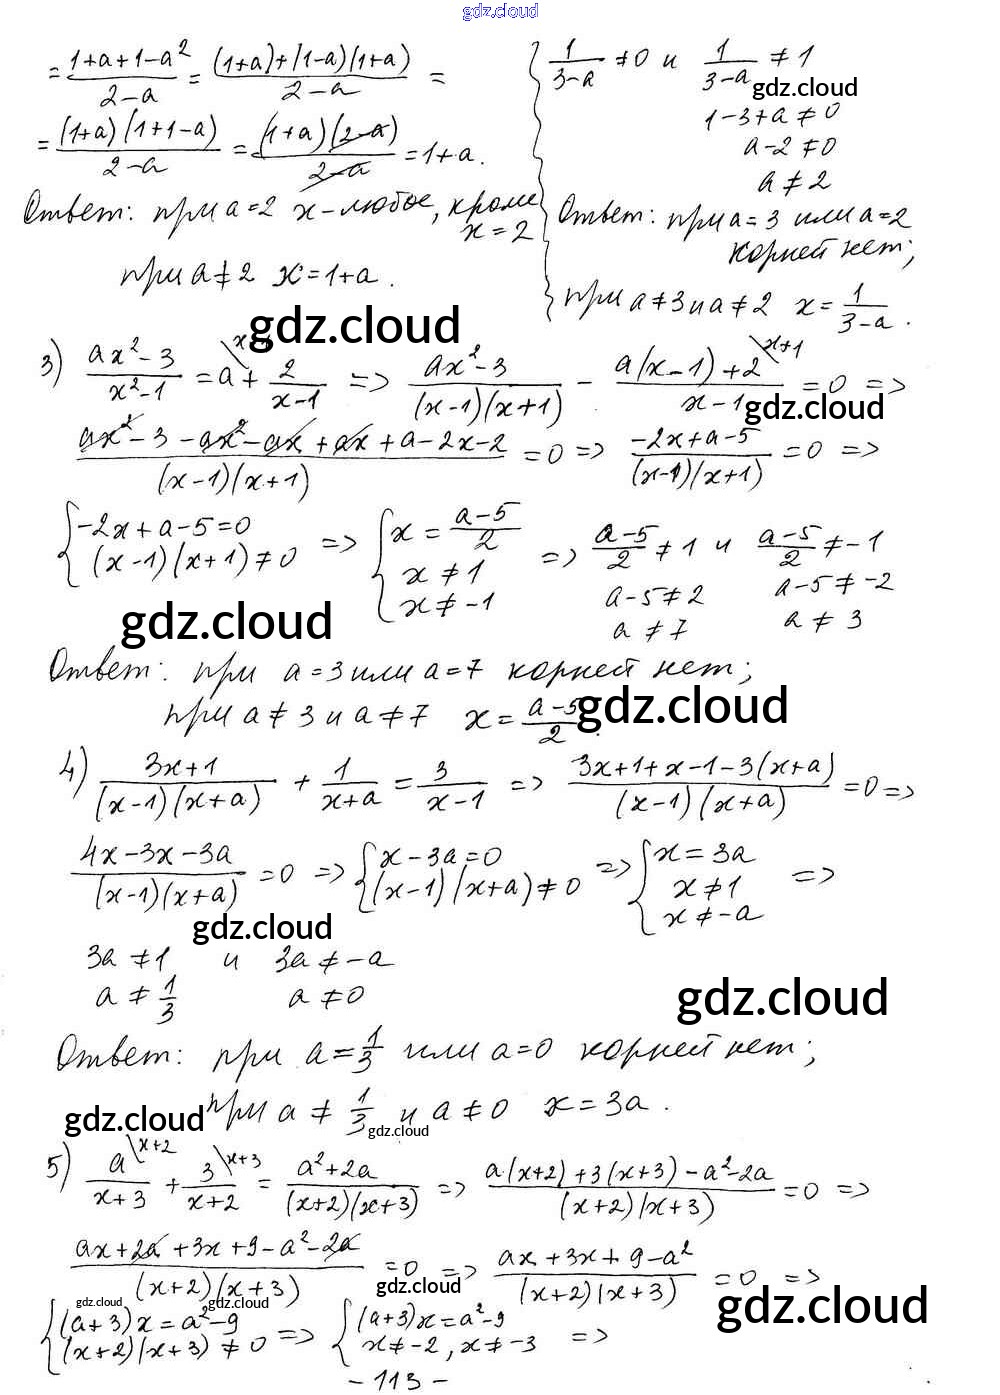 gdz.cloud
= (1+a+1-a²)/(2-a) = ((1+a)+(1-a)(1+a))/(2-a) =
= ((1+a)(1+1-a))/(2-a) = ((1+a)(2-a))/(2-a) = 1+a.
Ответ: при a=2 x-любое, кроме
x=2
при a≠2 x=1+a.
1/(3-a) ≠0 и 1/(3-a) ≠ 1
gdz.cloud
1-3+a≠0
a-2≠0
a≠2
Ответ: при a=3 или a=2
корней нет;
при a≠3 и a≠2 x = 1/(3-a).
gdz.cloud
3) (ax²-3)/(x²-1) = a + 2/(x-1) => (ax²-3)/((x-1)(x+1)) - (a(x-1)+2 \x+1)/(x-1) = 0 =>
gdz.cloud
(ax²-3-ax²-ax+ax+a-2x-2)/((x-1)(x+1)) = 0 => (-2x+a-5)/((x-1)(x+1)) = 0 =>
{ -2x+a-5=0 (x-1)(x+1)≠0 => { x = (a-5)/2 x≠1 x≠-1 => (a-5)/2 ≠1 и (a-5)/2 ≠-1
a-5≠2 a-5≠-2
a≠7 a≠3
gdz.cloud
Ответ: при a=3 или a=7 корней нет;
при a≠3 и a≠7 x = (a-5)/2.
gdz.cloud
4) (3x+1)/((x-1)(x+a)) + 1/(x+a) = 3/(x-1) => (3x+1+x-1-3(x+a))/((x-1)(x+a)) = 0 =>
(4x-3x-3a)/((x-1)(x+a)) = 0 => { x-3a=0 (x-1)(x+a)≠0 => { x=3a x≠1 x≠-a =>
gdz.cloud
3a≠1 и 3a≠-a
a≠1/3 a≠0
gdz.cloud
Ответ: при a=1/3 или a=0 корней нет;
при a≠1/3 и a≠0 x=3a.
gdz.cloud
gdz.cloud
5) a\x+2/(x+3) + 3\x+3/(x+2) = (a²+2a)/((x+2)(x+3)) => (a(x+2)+3(x+3)-a²-2a)/((x+2)(x+3)) = 0 =>
(ax+2a+3x+9-a²-2a)/((x+2)(x+3)) = 0 => (ax+3x+9-a²)/((x+2)(x+3)) = 0 =>
gdz.cloud
gdz.cloud
gdz.cloud
gdz.cloud
{ (a+3)x=a²-9 (x+2)(x+3)≠0 => { (a+3)x=a²-9 x≠-2, x≠-3 =>
- 113 -